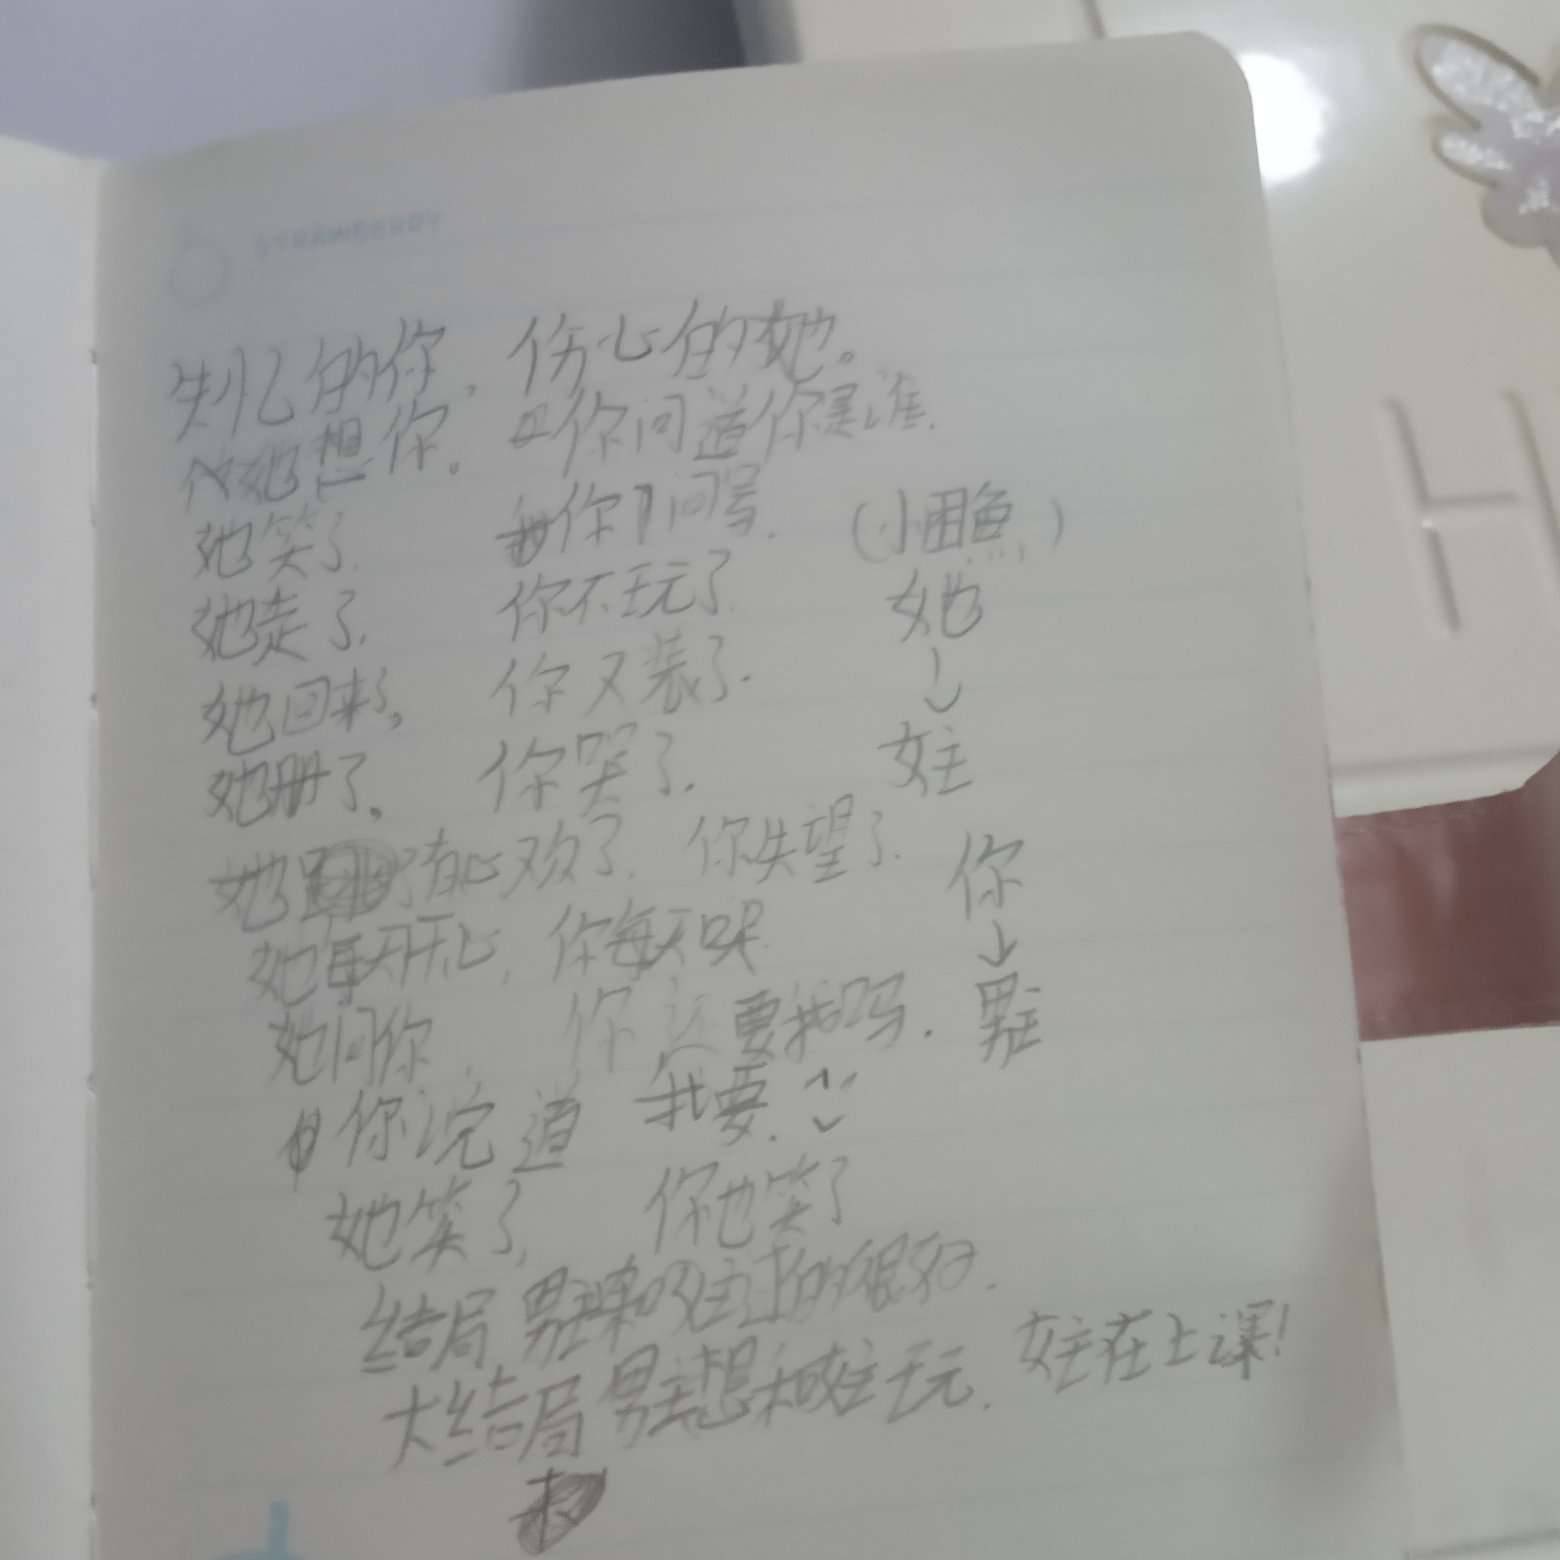 STRAWBERRY
失忆的你，伤心的她。
她想你。你问道你是谁.
她笑了. 你问号. (小困鱼)
她走了. 你不玩了. 她
她回来了。 你又装了. ↓
她册了。 你哭了. 女主
她有心欢了. 你失望了. 你
她每天开心, 你每天哭 ↓
她问你, 你还要我吗. 男主
你说道 我要.
她笑了, 你也笑了
结局 男主 女主 的很好.
大结局 男主想和女主玩. 女主在上课!
H